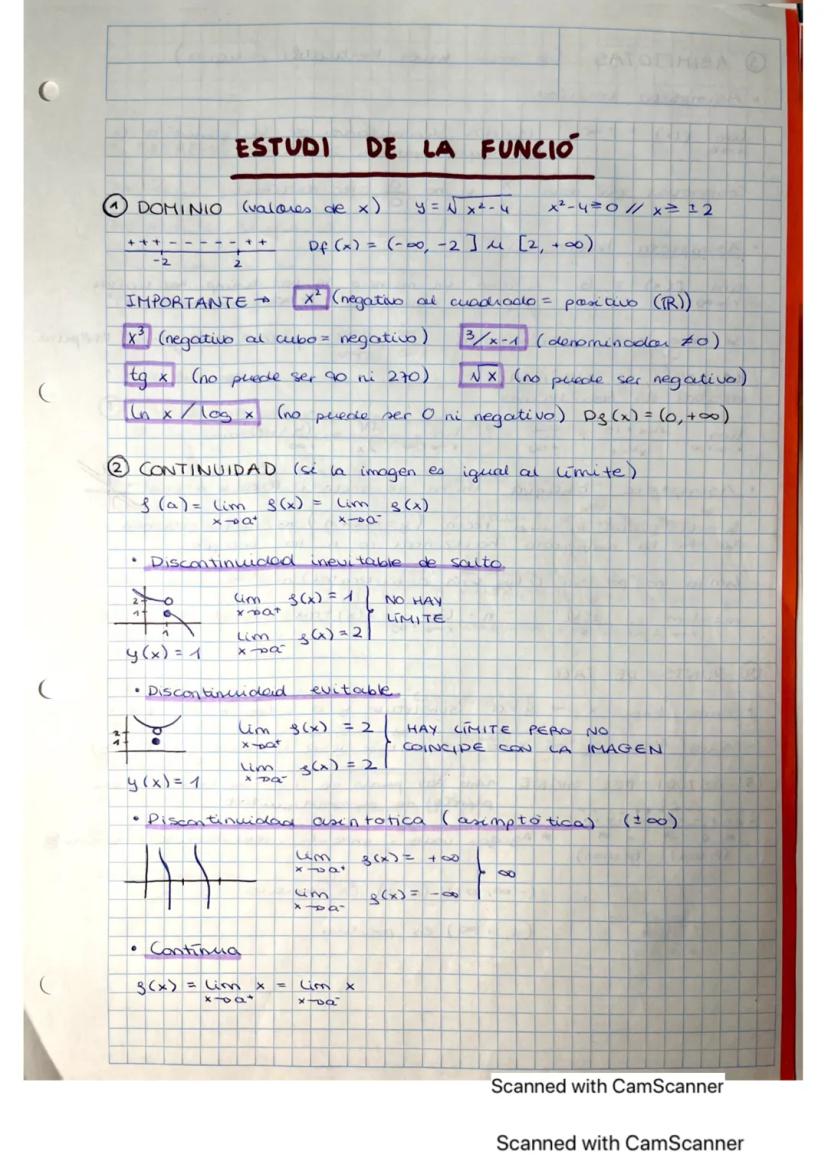 ESTUDI DE LA FUNCIÓ
① DOMINIO (valores de x) y = √x²-4 x²-4≥0 // x ≥ ±2
+++ - - - - - ++ Df(x) = (-∞, -2] u [2, +∞)
-2 2
IMPORTANTE → x² (negativo al cuadrado = positivo (ℝ))
x³ (negativo al cubo = negativo) 3/x-1 (denominador ≠0)
tg x (no puede ser 90 ni 270) √x (no puede ser negativo)
ln x / log x (no puede ser 0 ni negativo) Df(x) = (0, +∞)
② CONTINUIDAD (si la imagen es igual al límite)
f(a) = lim f(x) = lim f(x)
x→a⁺ x→a⁻
• Discontinuidad inevitable de salto
2 lim f(x) = 1 NO HAY
1 x→a⁺ LÍMITE
1 lim f(x) = 2
y(x) = 1 x→a⁻
• Discontinuidad evitable
2 lim f(x) = 2 HAY LÍMITE PERO NO
1 x→a⁺ COINCIDE CON LA IMAGEN
lim f(x) = 2
y(x) = 1 x→a⁻
• Discontinuidad asintotica (asimptótica) (±∞)
lim f(x) = +∞
x→a⁺ ∞
lim f(x) = -∞
x→a⁻
• Contínua
f(x) = lim x = lim x
x→a⁺ x→a⁻
Scanned with CamScanner
Scanned with CamScanner